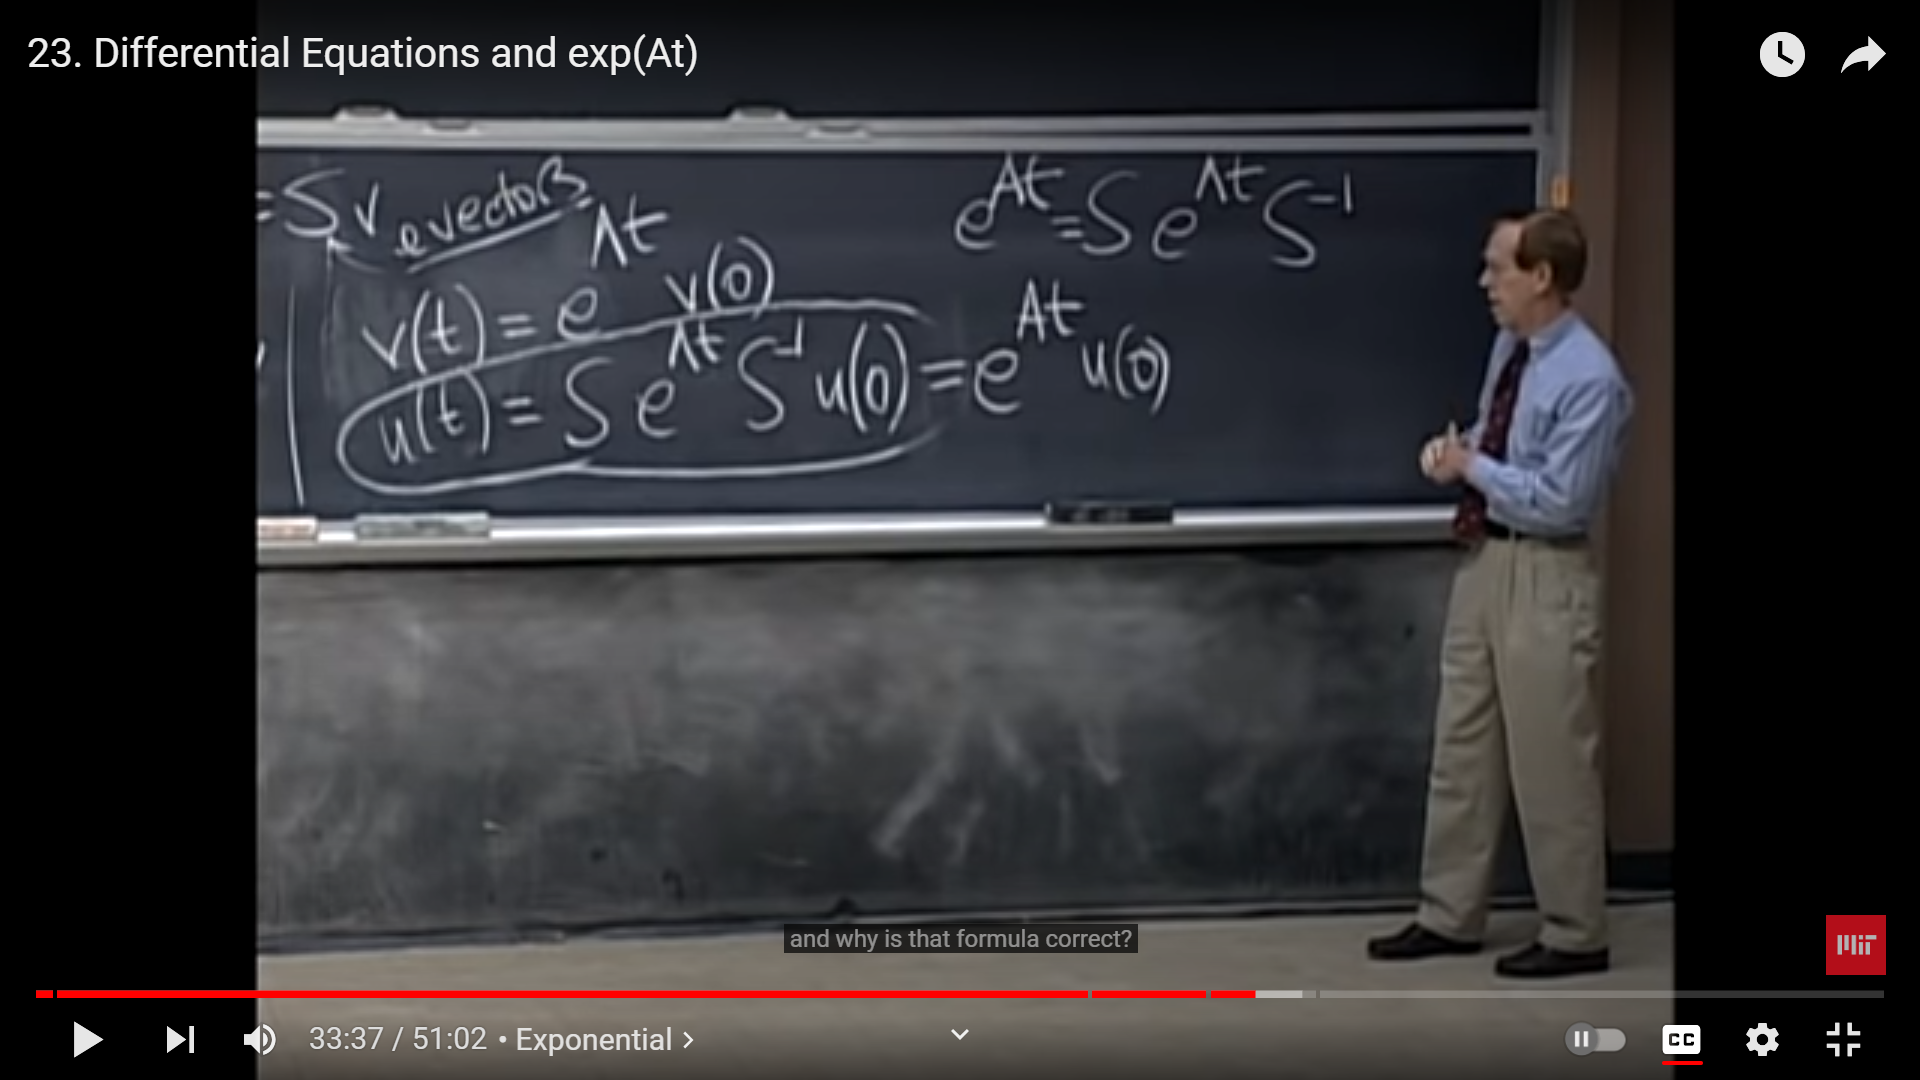 23. Differential Equations and exp(At)
=Sv evectors
v(t) = e^Λt v(0)
u(t) = S e^Λt S^-1 u(0) = e^At u(0)
e^At = S e^Λt S^-1
and why is that formula correct?
MIT
33:37 / 51:02 • Exponential >
CC